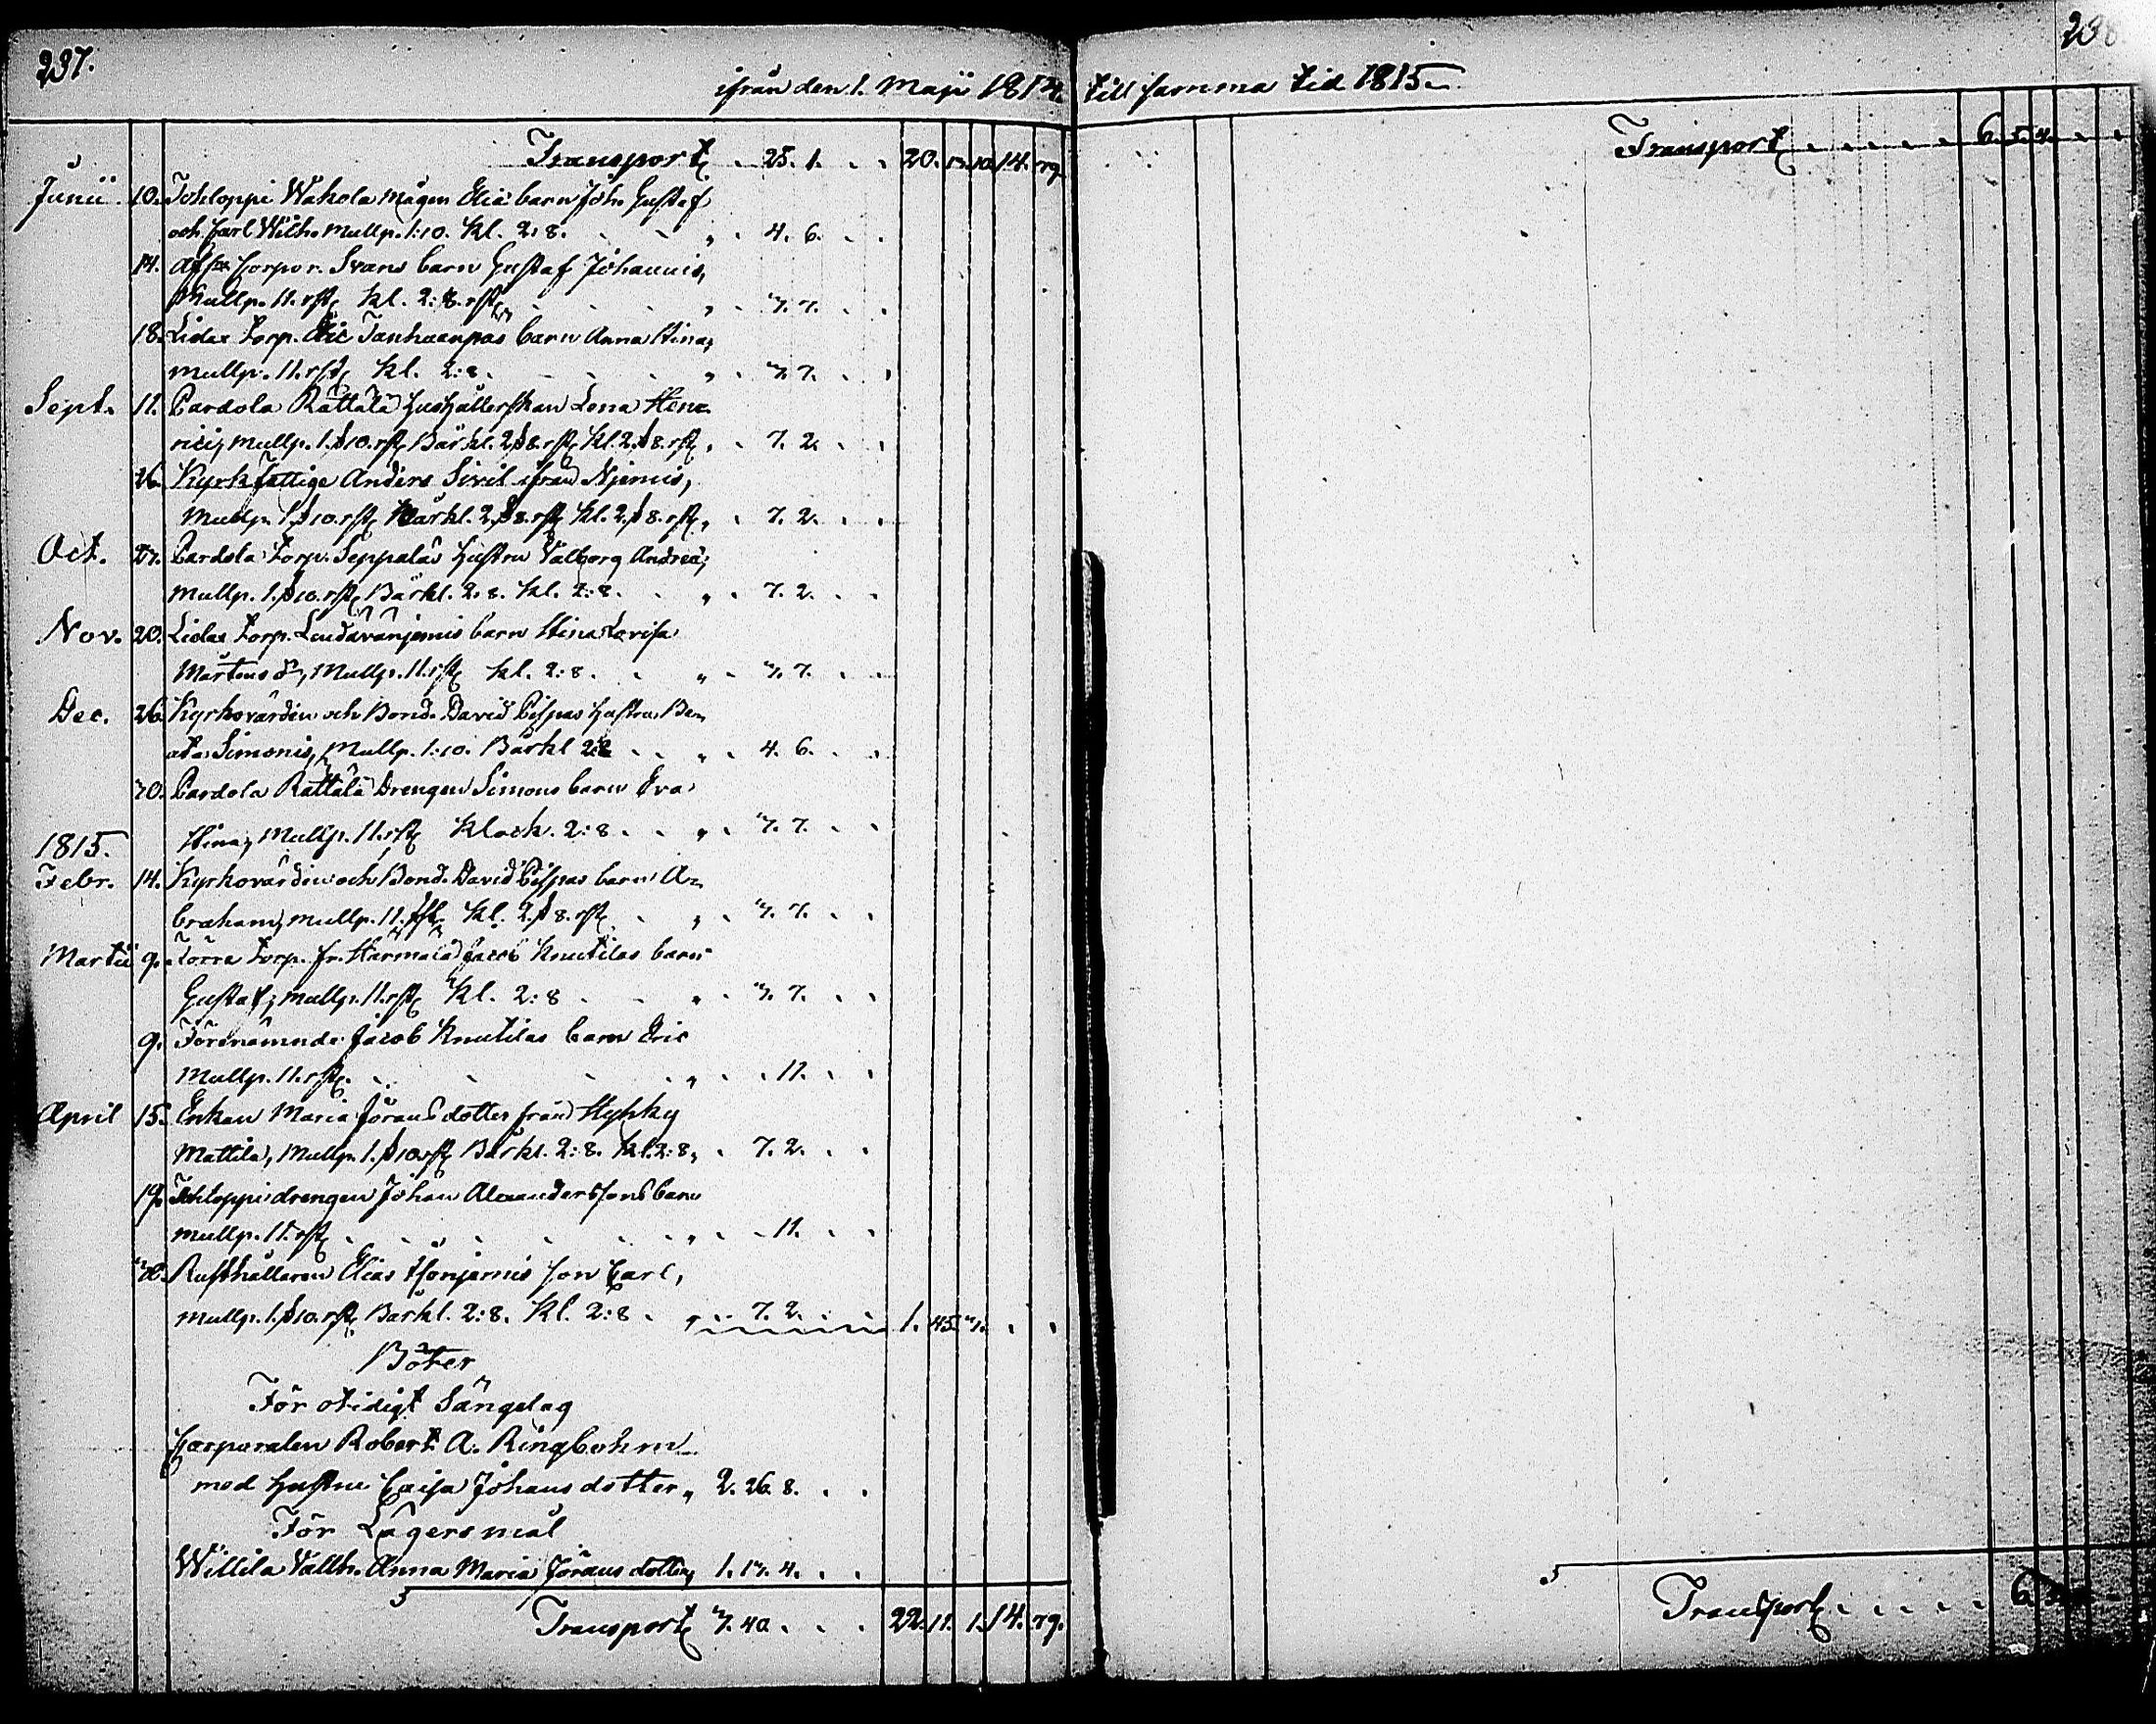 237.
238
ifrån den 1. Maji 1814. till samma tid 1815.
Transport . 25. 1. . . 20. 13. 10. 14. 79.
Junii 10. Wahola mågen Eliæ barn Joh. Gustaf
och Carl Wilh. Mullp. 1:10. Kl. 2:8. . . „ . 4. 6. . .
14. Corpor. Svans barn Gustaf Johannis,
Mullp. 11. rst. Kl. 2:8. rst. . . . „ . 3. 7. . .
18. Torp. Eric Tanhuanpääs barn Anna Stina,
Mullp. 11. rst. Kl. 2:8. . . . „ . 3. 7. . .
Sept. 11. Pardola Rättälä Hushållerskan Lena Hen=
rici, Mullp. 1.ß10.rst. Bårkl. 2ß8.rst. Kl.2.ß8.rst. „ . 7. 2. . .
26. Kyrkfattige Anders Sivil ifrån Njemis,
Mullp. 1.ß10.rst. Bårkl. 2.ß8.rst. Kl. 2.ß8.rst. „ . 7. 2. . .
Oct. 27. Pardola Torp. Seppäläs hustru Valborg Andreæ,
Mullp. 1.ß10.rst. Bårkl. 2.8. Kl. 2:8. . „ . 7. 2. . .
Nov. 20. Torp. barn Stina Lovisa
Mårtens dr, Mullp. 11. rst. Kl. 2:8. . „ . 3. 7. . .
Dec. 26. Kyrkovärden och Bond. David Pispas hustru Be=
ata Simonis, Mullp. 1:10. Bårkl 2:8 . . „ . 4. 6. . .
30. Pardola Rättälä Drengen Simons barn Eva
Stina, Mullp. 11. rst. Klock. 2:8. . „ . 3. 7. . .
1815.
Febr. 14. Kyrkovärden och Bond. David Pispas barn A=
braham, Mullp. 11. rst. Kl. 2.ß8. rst. . „ . 3. 7. . .
Martii 9. Torra Torp. fr. Härmälä Jacob Knutilas barn
Gustaf, Mullp. 11. rst. Kl. 2:8 . . „ . 3. 7. . .
9. Förenämnde Jacob Knutilas barn Eric
Mullp. 11. rst. . . . . „ . . 11. . .
April 15. Enkan Maria Jörans dotter från Hyhky
Mattila, Mullp. 1.ß10.rst. Bårkl. 2:8. Kl. 2:8, . 7. 2. . .
19. drengen Johan Alexanderssons barn
Mullp. 11. rst. . . . . . „ . . 11. . .
30. Rusthållaren Elias son Carl,
Mullp. 1.ß10.rst. Bårkl. 2:8. Kl. 2:8 . „ . 7. 2. . . 1. 45. 3. . .
Böter
För otidigt Sängelag
Corporalen Robert A. Ringbohm
med hustru Caisa Johans dotter „ 2. 26. 8. . .
För Lägersmål
Willila Vallh. Anna Maria Jörans dotter, 1. 13. 4. . .
Transport 3. 40. . . . 22. 11. 1. 14. 79.
Transport . . . . . 6. 5. 4. . .
Transport . . . . . 6.